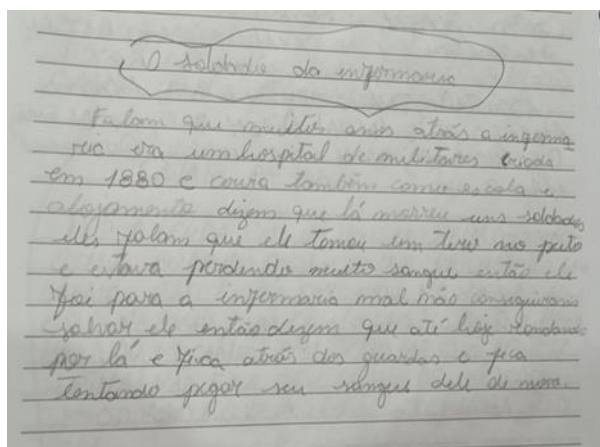 O soldado da infermaria
Falam que muitos anos atrás a inferma
ria era um hospital de militares criada
em 1880 e também como escola e
alojamento dizem que lá morreu uns soldados
eles falam que ele tomou um tiro no peito
e estava perdendo muito sangue então ele
foi para a infermaria mal não conseguiram
salvar ele então dizem que até hoje
por lá e fica atrás dos guardas e fica
tentando pegar seu sangue dele de nova.